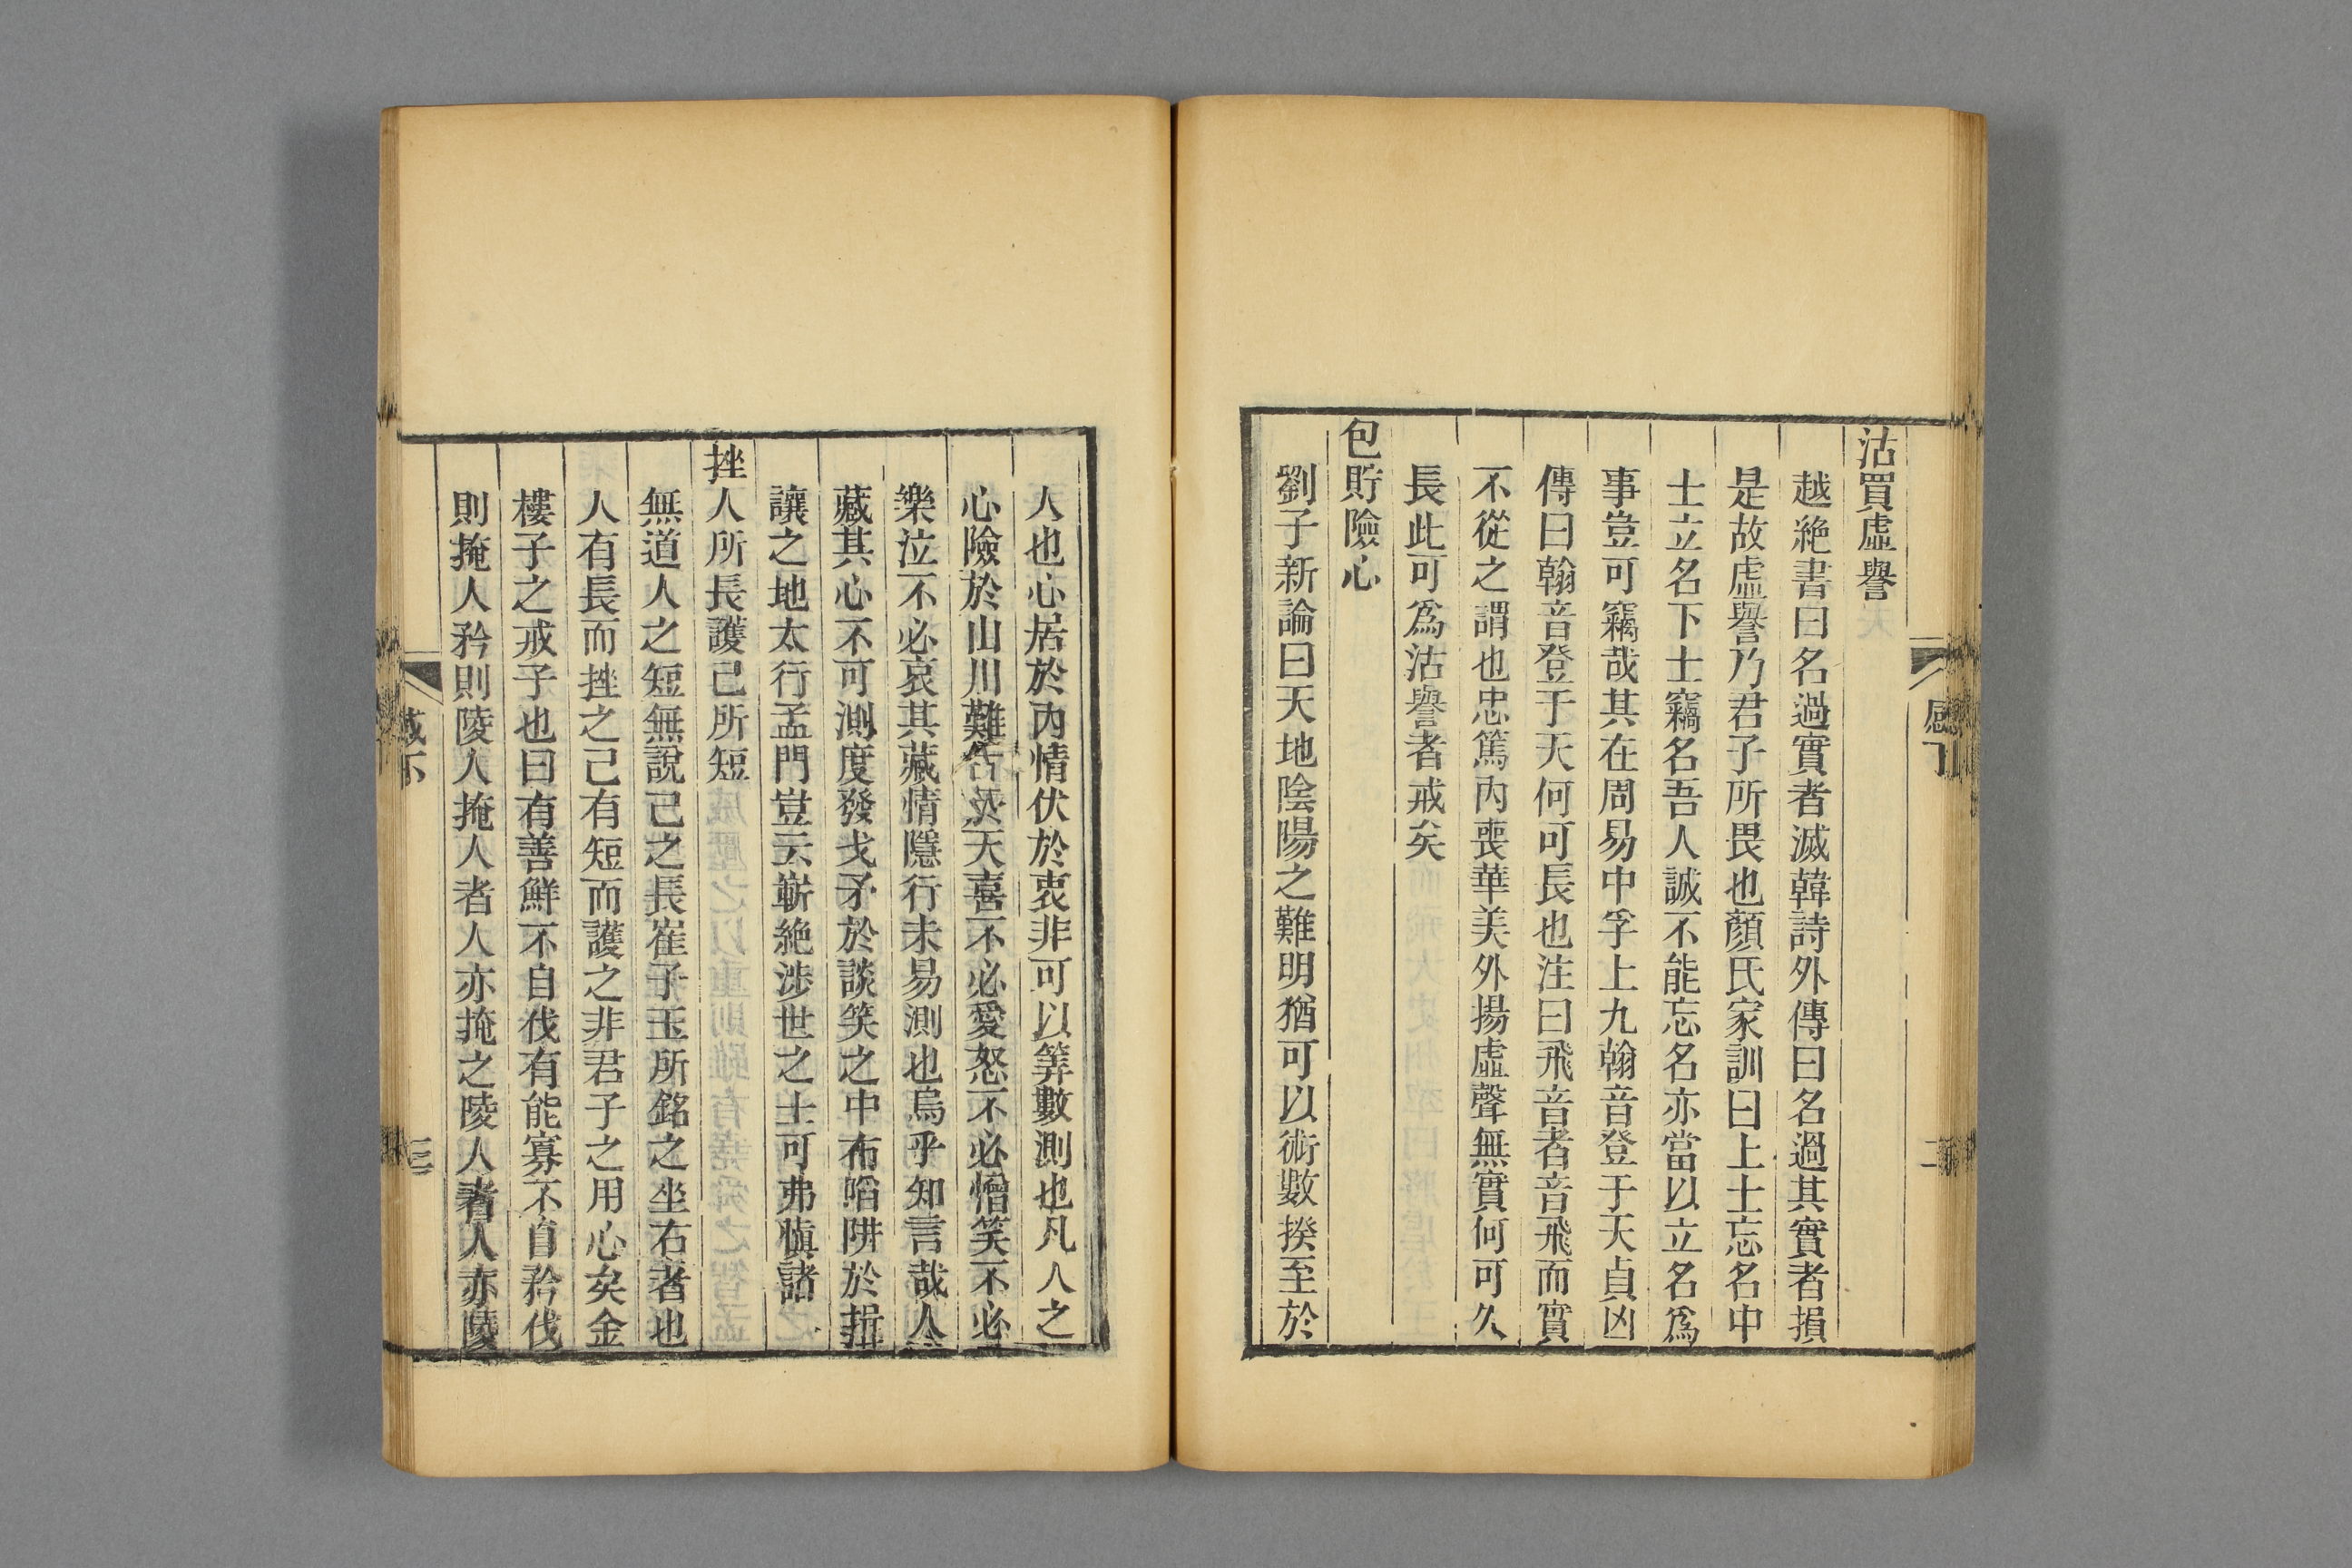 沽買虛譽
越絶書曰名過實者滅韓詩外傳曰名過其實者損
是故虛譽乃君子所畏也顏氏家訓曰上士忘名中
士立名下士竊名吾人誠不能忘名亦當以立名爲
事豈可竊哉其在周易中孚上九翰音登于天貞凶
傳曰翰音登于天何可長也注曰飛音者音飛而實
不從之謂也忠篤內喪華美外揚虛聲無實何可久
長此可爲沽譽者戒矣
包貯險心
劉子新論曰天地陰陽之難明猶可以術數揆至於
人也心居於內情伏於衷非可以筭數測也凡人之
心險於山川難於天喜不必愛怒不必憎笑不必
樂泣不必哀其藏情隱行未易測也烏乎知言哉人
藏其心不可測度發戈矛於談笑之中布䧟阱於揖
讓之地太行孟門豈云嶄絶涉世之士可弗愼諸
挫人所長護己所短
無道人之短無說己之長崔子玉所銘之坐右者也
人有長而挫之己有短而護之非君子之用心矣金
樓子之戒子也曰有善鮮不自伐有能寡不自矜伐
則掩人矜則陵人掩人者人亦掩之陵人者人亦陵
下
三